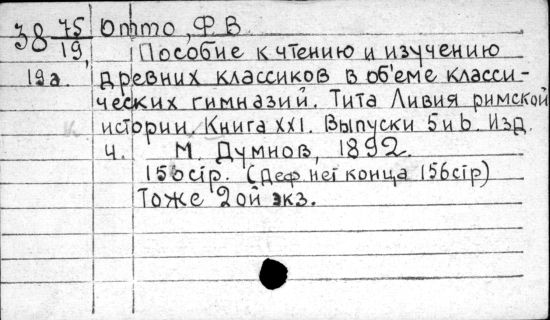 38 75/19, Отто, Ф. В.
Пособие к чтению и изучению
19а. древних классиков в об'еме класси-
ческих гимназий. Тита Ливия римской
истории. Книга XXI. Выпуски 5 и 6. Изд.
4. М. Думнов, 1892.
156стр. (Деф. нет конца 156стр)
Тоже 2ой экз.